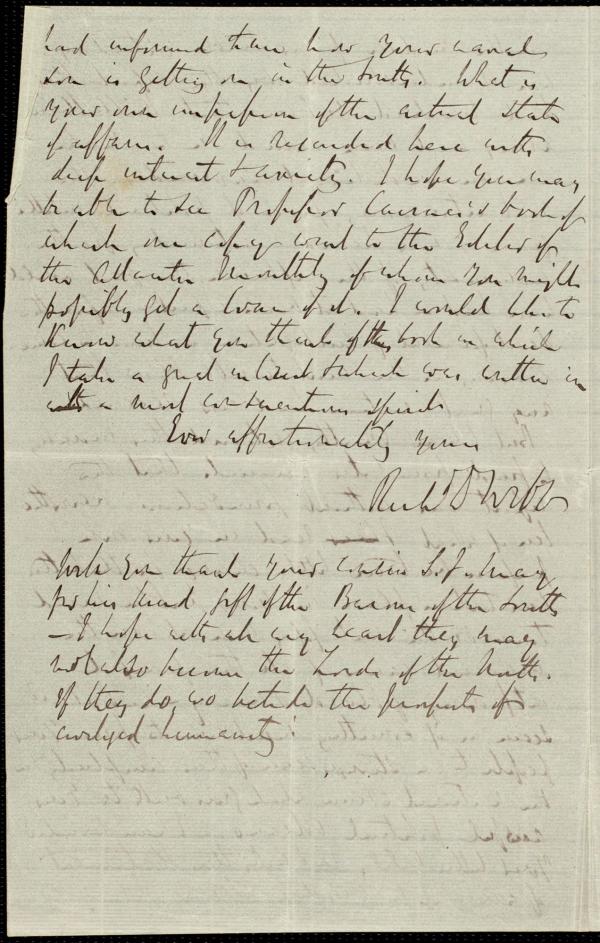 had informed them how your naval
son is getting on in the South. What is
your own impression of the actual state
of affairs. It is regarded here with
deep interest & anxiety. I hope you may
be able to see Professor Cairnes's book of
which one copy went to the Editor of
the Atlantic Monthly of whom you might
possibly get a loan of it. I would like to
know what you think of this book in which
I take a great interest & which was written in
a most conscientious spirit
Ever affectionately yours
Richd D Webb
Will you thank your cousin S. J. May
for his kind gift of the Barons of the South
— I hope with all my heart they may
not also become the Lords of the North.
If they do, wo betide the prospects of
civilized humanity!